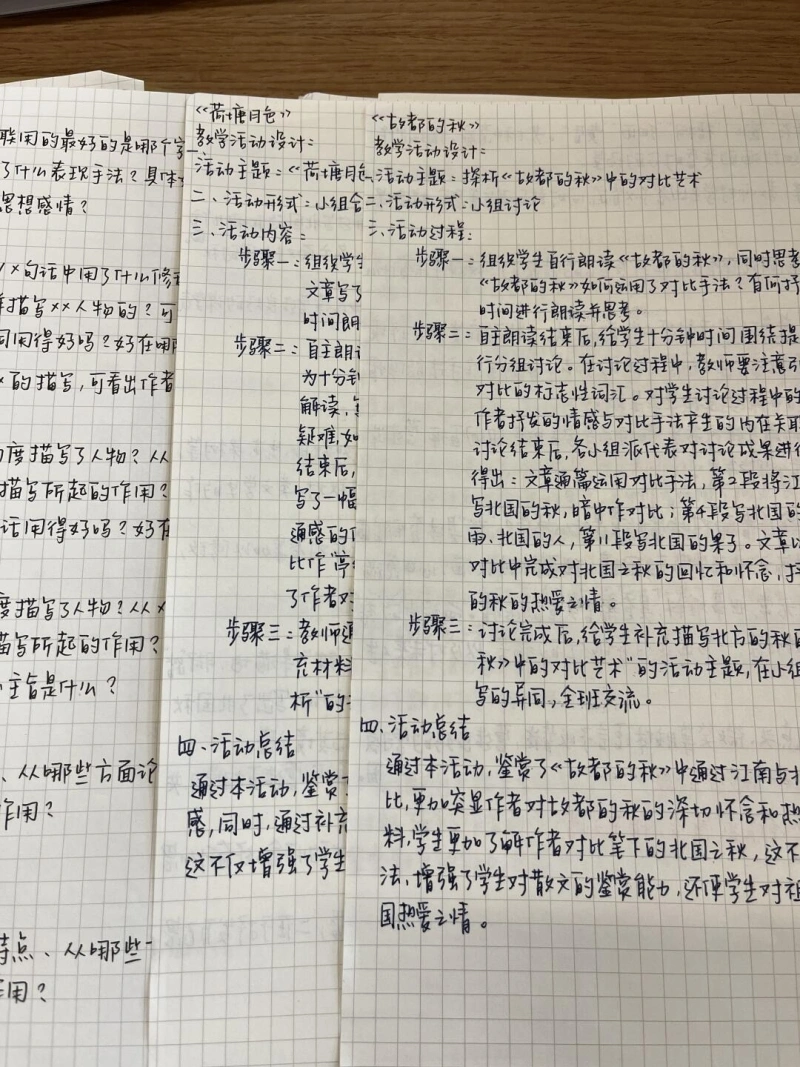 联用的最好的是哪个字
了什么表现手法？具体
思想感情？
××句话中用了什么修
描写××人物的？可
词用得好吗？好在哪
×的描写，可看出作者
度描写了人物？从
描写所起的作用？
话用得好吗？好在
度描写了人物？从×
描写所起的作用？
主旨是什么？
、从哪些方面论
作用？
特点、从哪些
用？
《荷塘月色》
教学活动设计：
活动主题：《荷塘月色
二、活动形式：小组合
三、活动内容：
步骤一：组织学生
文章写了
时间朗
步骤二：自主朗读
为十分钟
解读，
疑难，如
结束后，
写了一幅
通感的
比作"
了作者对
步骤三：教师通
充材料
析"的
四、活动总结
通过本活动，鉴赏
感，同时，通过补充
这不仅增强了学生
《故都的秋》
教学活动设计：
活动主题：探析《故都的秋》中的对比艺术
二、活动形式：小组讨论
三、活动过程：
步骤一：组织学生自行朗读《故都的秋》，同时思考
《故都的秋》如何运用了对比手法？有何抒
时间进行朗读并思考。
步骤二：自主朗读结束后，给学生十分钟时间围绕提
行分组讨论。在讨论过程中，教师要注意引
对比的标志性词汇。对学生讨论过程中的
作者抒发的情感与对比手法产生的内在关联
讨论结束后，各小组派代表对讨论成果进行
得出：文章通篇运用对比手法，第2段将江
写北国的秋，暗中作对比；第4段写北国的
雨、北国的人，第11段写北国的果子。文章以
对比中完成对北国之秋的回忆和怀念，抒
的秋的热爱之情。
步骤三：讨论完成后，给学生补充描写北方的秋的
秋》中的对比艺术"的活动主题，在小组
写的异同，全班交流。
四、活动总结
通过本活动，鉴赏了《故都的秋》中通过江南与北
比，更加突显作者对故都的秋的深切怀念和热
料，学生更加了解作者对比笔下的北国之秋，这不
法、增强了学生对散文的鉴赏能力，还使学生对祖
国热爱之情。